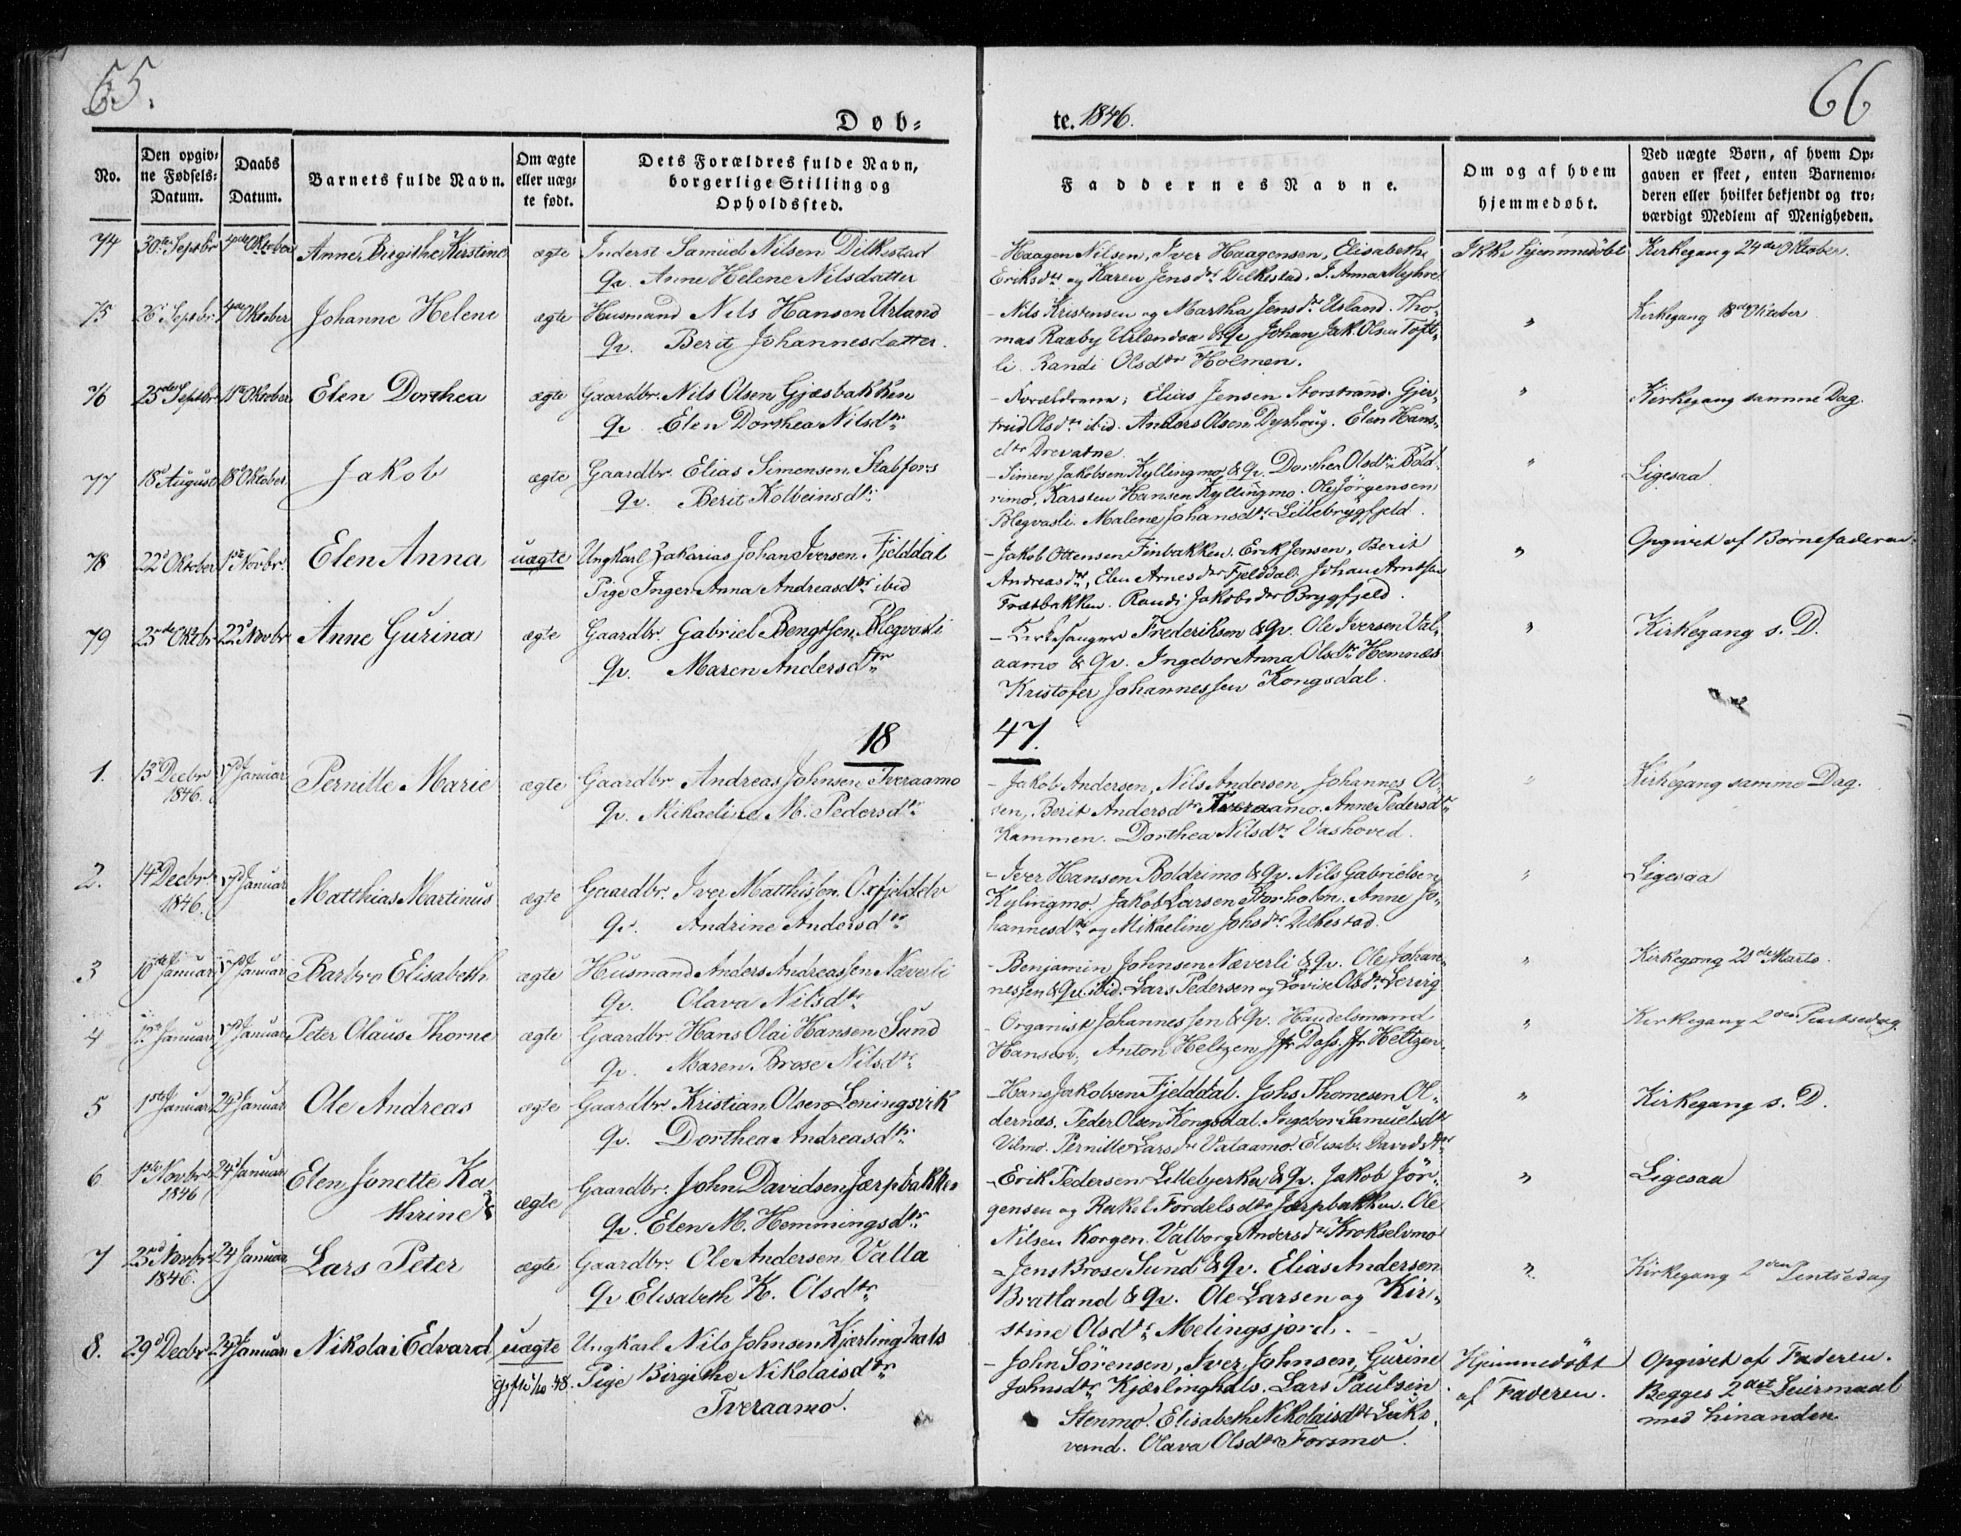 65.
66
Døb-
te. 1846.
No.
Den opgiv-
ne Fødsels-
Datum.
Daabs
Datum.
Barnets fulde Navn.
Om ægte
eller uæg-
te født.
Dets Forældres fulde Navn,
borgerlige Stilling og
Opholdssted.
Faddernes Navne.
Om og af hvem
hjemmedøbt.
Ved uægte Børn, af hvem Op-
gaven er skeet, enten Barnemo-
deren eller hvilket bekjendt og tro-
værdigt Medlem af Menigheden.
74 30te Septbr 4de Oktober Anne Birgithe Kirstine ægte Inderst Samuel Nilsen Dilkestad
Qv. Anne Helene Nilsdatter
- Haagen Nilsen, Iver Haagensen, Elisabeth
Eriksdtr og Karen Jensdtr Dilkestad. J. Anna Myhre
Ikke hjemmedøbt Kirkegang 24de Oktober.
75 26 Septbr 4de Oktober Johanne Helene ægte Husmand Nils Hansen Urland
Qv. Berit Johannesdatter.
- Nils Kristensen og Martha Jensdtr Urland. Tho-
mas Raaby Urlandaa & Qv. Johan Jak. Olsen Toft-
li. Randi Olsdtr Holmen.
" Kirkegang 18de Oktober
76 25de Septbr 11te Oktober Elen Dorthea ægte Gaardbr. Nils Olsen Gjæsbakken
Qv. Elen Dorthea Nilsdtr
- Forældrene; Elias Jensen Storstrand. Gjer-
trud Olsdtr ibid. Anders Olsen Dyrhoug. Elen Hans-
dtr Drevatne.
" Kirkegang samme Dag.
77 18d August 18d Oktober Jakob ægte Gaardbr. Elias Simensen Stabfors
Qv. Berit Kolbeinsdtr
- Simen Jakobsen Kyllingmo & Qv. Dorthea Olsdtr Bold-
rimo. Karsten Hansen Kyllingmo. Ole Jørgensen
Blegvasli. Malene Johansdtr Lillebrygfjeld.
" Ligesaa.
78 22d Oktober 1ste Novbr. Elen Anna uægte Ungkarl Zakarias Johan Iversen Fjelddal
Pige Inger Anna Andreasdtr ibid
- Jakob Ottensen Finbakken. Erik Jensen, Berit
Andreasdtr, Elen Arnesdtr Fjelddal. Johan Arntsen
Træsbakken. Randi Jakobsdtr Brygfjeld.
" Opgivet af Børnefaderen.
79 25de Oktbr 22d Novbr Anne Gurina ægte Gaardbr. Gabriel Bengtsen Blegvasli
Qv. Maren Andersdtr
- Kirkesanger Frederiksen & Qv. Ole Iversen Val-
aamo & Qv. Ingebor Anna Olsdtr Hemnæs
Kristofer Johannessen Kongsdal.
" Kirkegang s. D.
18 47.
1. 13d Decbr 1846. Januar Pernille Marie ægte Gaardbr. Andreas Johnsen Tveraamo
Qv. Mikaeline M. Pedersdtr
- Jakob Andersen, Nils Andersen, Johannes Ol-
sen, Berit Andersdtr Tveraamo. Anne Pedersdtr
Kammen. Dorthea Nilsdtr Vashoved.
" Kirkegang samme Dag.
2. 14d Decbr 1846. Januar Matthias Martinus ægte Gaardbr. Iver Matthisen Oxfjeldelv
Qv. Andrine Andersdtr
- Iver Hansen Boldrimo & Qv. Nils Gabrielsen
Kylingmo Jakob Larsen Storholm. Anne Jo-
hannesdtr og Mikaeline Johsdtr Dilkestad.
" Ligesaa
3 Januar Januar Barbro Elisabeth ægte Husmand Anders Andreassen Næverli
Qv. Olava Nilsdtr
- Benjamin Johnsen Næverli & Qv. Ole Johan-
nessen & Qv. ibid. Lars Pedersen og Lovise Olsdtr Lerivig
" Kirkegang 21de Marts.
4 Januar Januar Peter Olaus Thorne ægte Gaardbr. Hans Olai Hansen Sund
Qv. Maren Brose Nilsdtr
- Organist Johannessen & Qv. Handelsmand
Hansen, Anton Heltzen, Jfr Dass. Jfr Heltzen.
" Kirkegang 2den Pintsedag
5 1ste Januar 24d Januar Ole Andreas ægte Gaardbr. Kristian Olsen Leningsvik
Qv. Dorthea Andreasdtr
- Hans Jakobsen Fjelddal. Johs Thomesen Ol-
dernæs. Peder Olsen Kongsdal. Ingebor Samuelsdtr
Vilmo. Pernille Larsdtr Valaamo. Elisab. Davidsdtr
" Kirkegang s. D.
6 1ste Novbr 1846 24d Januar Elen Jonette Ka-
thrine ægte Gaardbr. John Davidsen Jærpbakken
Qv. Elen M. Hemmingsdtr
- Erik Pedersen Lillebjerken & Qv. Jakob Jør-
gensen og Rakel Fordelsdtr Jærpbakken. Ole
Nilsen Korgen. Valborg Andersdtr Krokselvmo
" Ligesaa
7 23d Novbr 1846. 24 Januar Lars Peter ægte Gaardbr. Ole Andersen Valla
Qv Elisabeth K. Olsdtr
- Jens Brose Sund & Qv. Elias Andersen
Bratland & Qv. Ole Larsen og Kir-
stine Olsdtr Melingsjord.
" Kirkegang 2den Pintsedag
8. 29d Decbr 24d Januar Nikolai Edvard uægte Ungkarl Nils Johnsen Kjærlinghals
Gifte 1/10 48. Pige Birgithe Nikolaisdtr
Tveraamo.
- John Sørensen, Iver Johnsen, Gurine
Johnsdtr Kjærlinghals. Lars Paulsen
Stenmo. Elisabeth Nikolaisdtr Luks-
vand. Olava Olsdtr Forsmo.
Hjemmedøbt
af Faderen.
Opgivet af Faderen.
Begges 2det Leiermaal
med hinanden